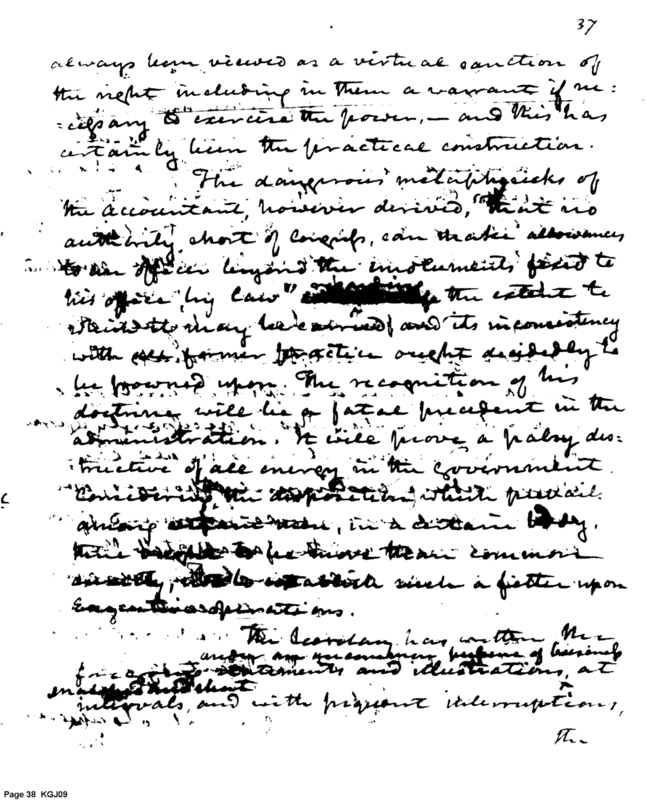 37
always been viewed as a virtual sanction of
the right including in them a warrant if ne:
:cessary to exercise the power, – and this has
certainly been the practical construction.
The dangerous metaphysicks of
the accountant, however derived, "that no
authority, short of Congress, can make allowances
to an officer beyond the emoluments fixed to
his office by law" the extent to
which it may be carried, and its inconsistency
with former practice ought decidedly to
be frowned upon. The recognition of his
doctrine will be a fatal precedent in the
administration. It will prove a palsy des:
:tructive of all energy in the Government.
Considering the disposition, which prevail
among certain men, in a certain body,
there ought to be more than common
anxiety, not to establish such a fetter upon
Executive operations.
The Secretary has written the
under an uncommon pressure of business
statements and illustrations, at
and short
intervals, and with frequent interruptions,
the
Page 38 KGJ09